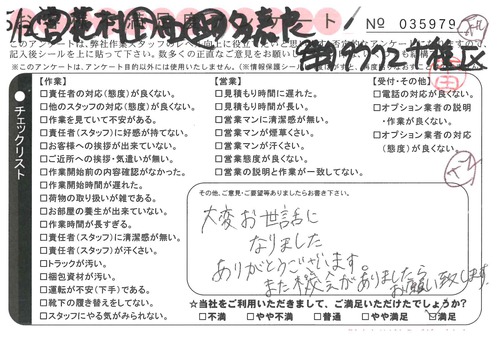 アンケート
No 035979
このアンケートは、弊社作業スタッフのレベル向上に役立
記入後シールを上に貼って下さい。
※このアンケートは、アンケート目的以外には使用いたしません。
チェックリスト
【作業】
□責任者の対応(態度)が良くない。
□他のスタッフの対応(態度)が良くない。
□作業を見ていて不安がある。
□責任者(スタッフ)に好感が持てない。
□お客様への挨拶が出来ていない。
□ご近所への挨拶・気遣いが無い。
□作業開始前の内容確認がなかった。
□作業開始時間が遅れた。
□荷物の取り扱いが雑である。
□お部屋の養生が出来ていない。
□作業時間が長すぎる。
□責任者(スタッフ)に清潔感が無い。
□責任者(スタッフ)が汗くさい。
□トラックが汚い。
□梱包資材が汚い。
□運転が不安(下手)である。
□靴下の履き替えをしてない。
□スタッフにやる気がみられない。
【営業】
□見積もり時間に遅れた。
□見積もり時間が長い。
□営業マンに清潔感が無い。
□営業マンが煙草くさい。
□営業マンが汗くさい。
□営業態度が良くない。
□営業の説明と作業が一致してない。
【受付・その他】
□電話の対応が良くない。
□オプション業者の説明
・作業が良くない。
□オプション業者の対応
(態度)が良くない。
その他、ご意見・ご要望等ありましたらお書き下さい。
大変お世話に
なりました
ありがとうございます。
また機会がありましたら
お願い致します。
☆当社をご利用いただきまして、ご満足いただけたでしょうか?
□不満 □やや不満 □普通 □やや満足 ☑満足